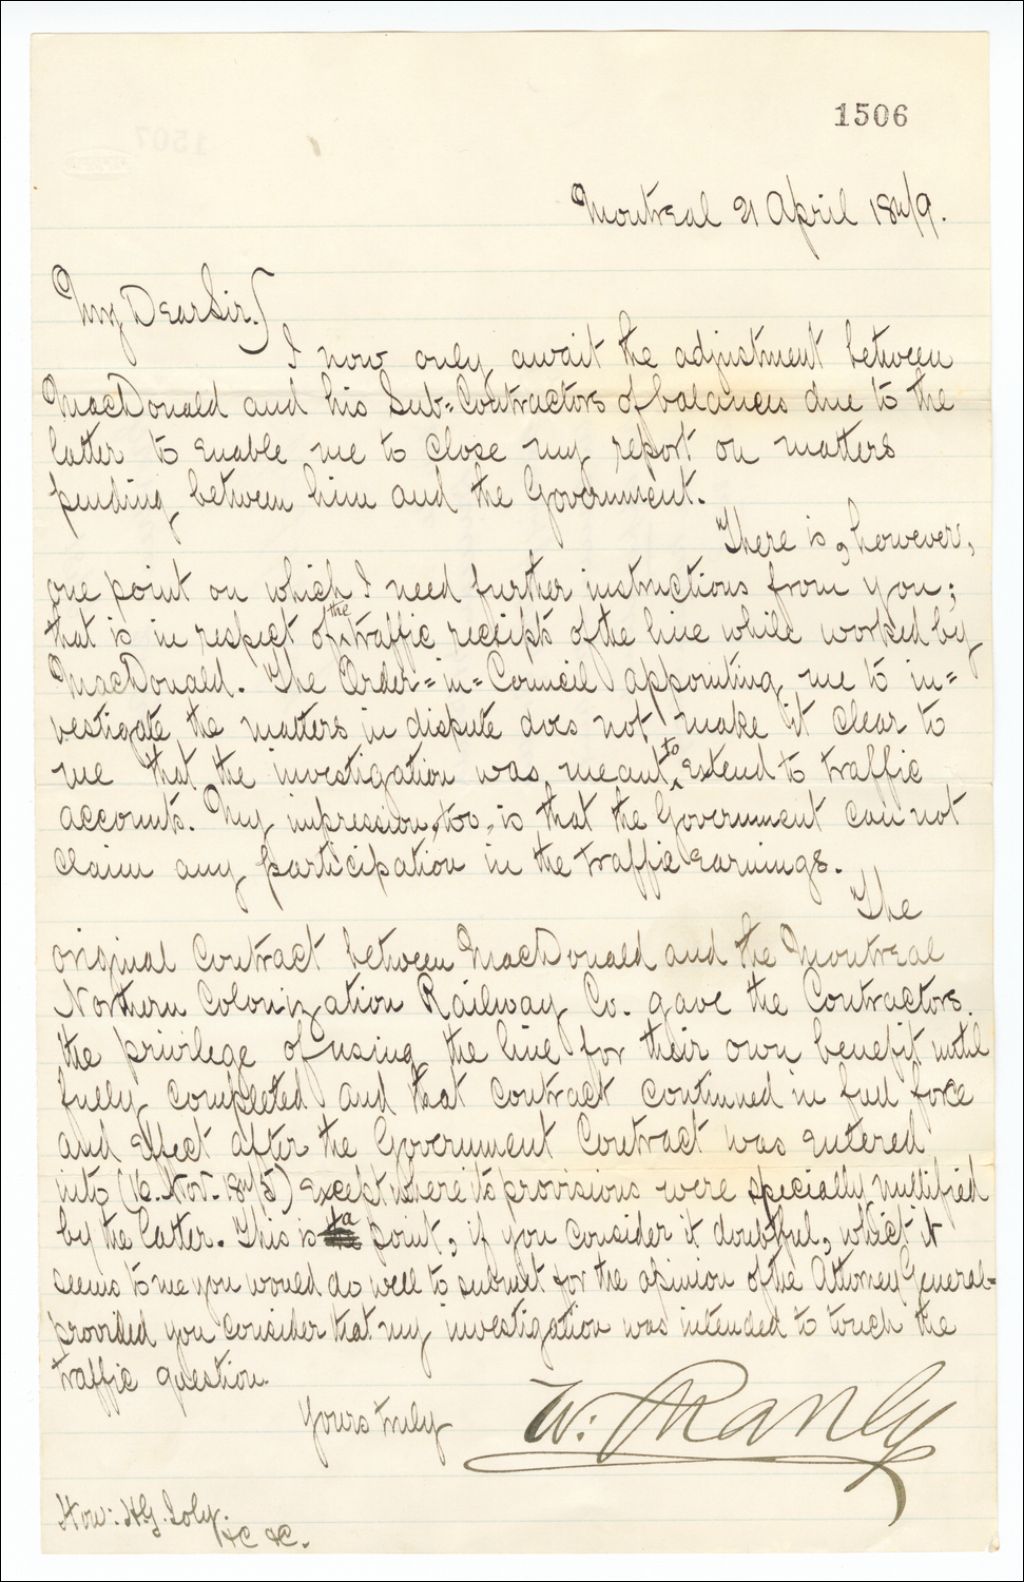 1506
Montreal 21 April 1879.
My Dear Sir.
I now only await the adjustment between
MacDonald and his Sub=Contractors of balances due to the
latter to enable me to close my report on matters
pending between him and the Government.
There is, however,
one point on which I need further instructions from you;
that is in respect of the traffic receipts of the line while worked by
MacDonald. The Order=in=Council appointing me to in=
vestigate the matters in dispute does not make it clear to
me that the investigation was meant to extend to traffic
accounts. My impression, too, is that the Government can not
claim any participation in the traffic earnings.
The
original Contract between MacDonald and the Montreal
Northern Colonization Railway Co. gave the Contractors
the privilege of using the line for their own benefit until
fully completed and that contract continued in full force
and effect after the Government Contract was entered
into (16. Nov. 1875) except where its provisions were specially nullified
by the latter. This is a point, if you consider it doubtful, which it
seems to me you would do well to submit for the opinion of the Attorney General=
provided you consider that my investigation was intended to touch the
traffic question.
Yours truly
W: Shanly
Hon: H.G. Joly.
&c &c.